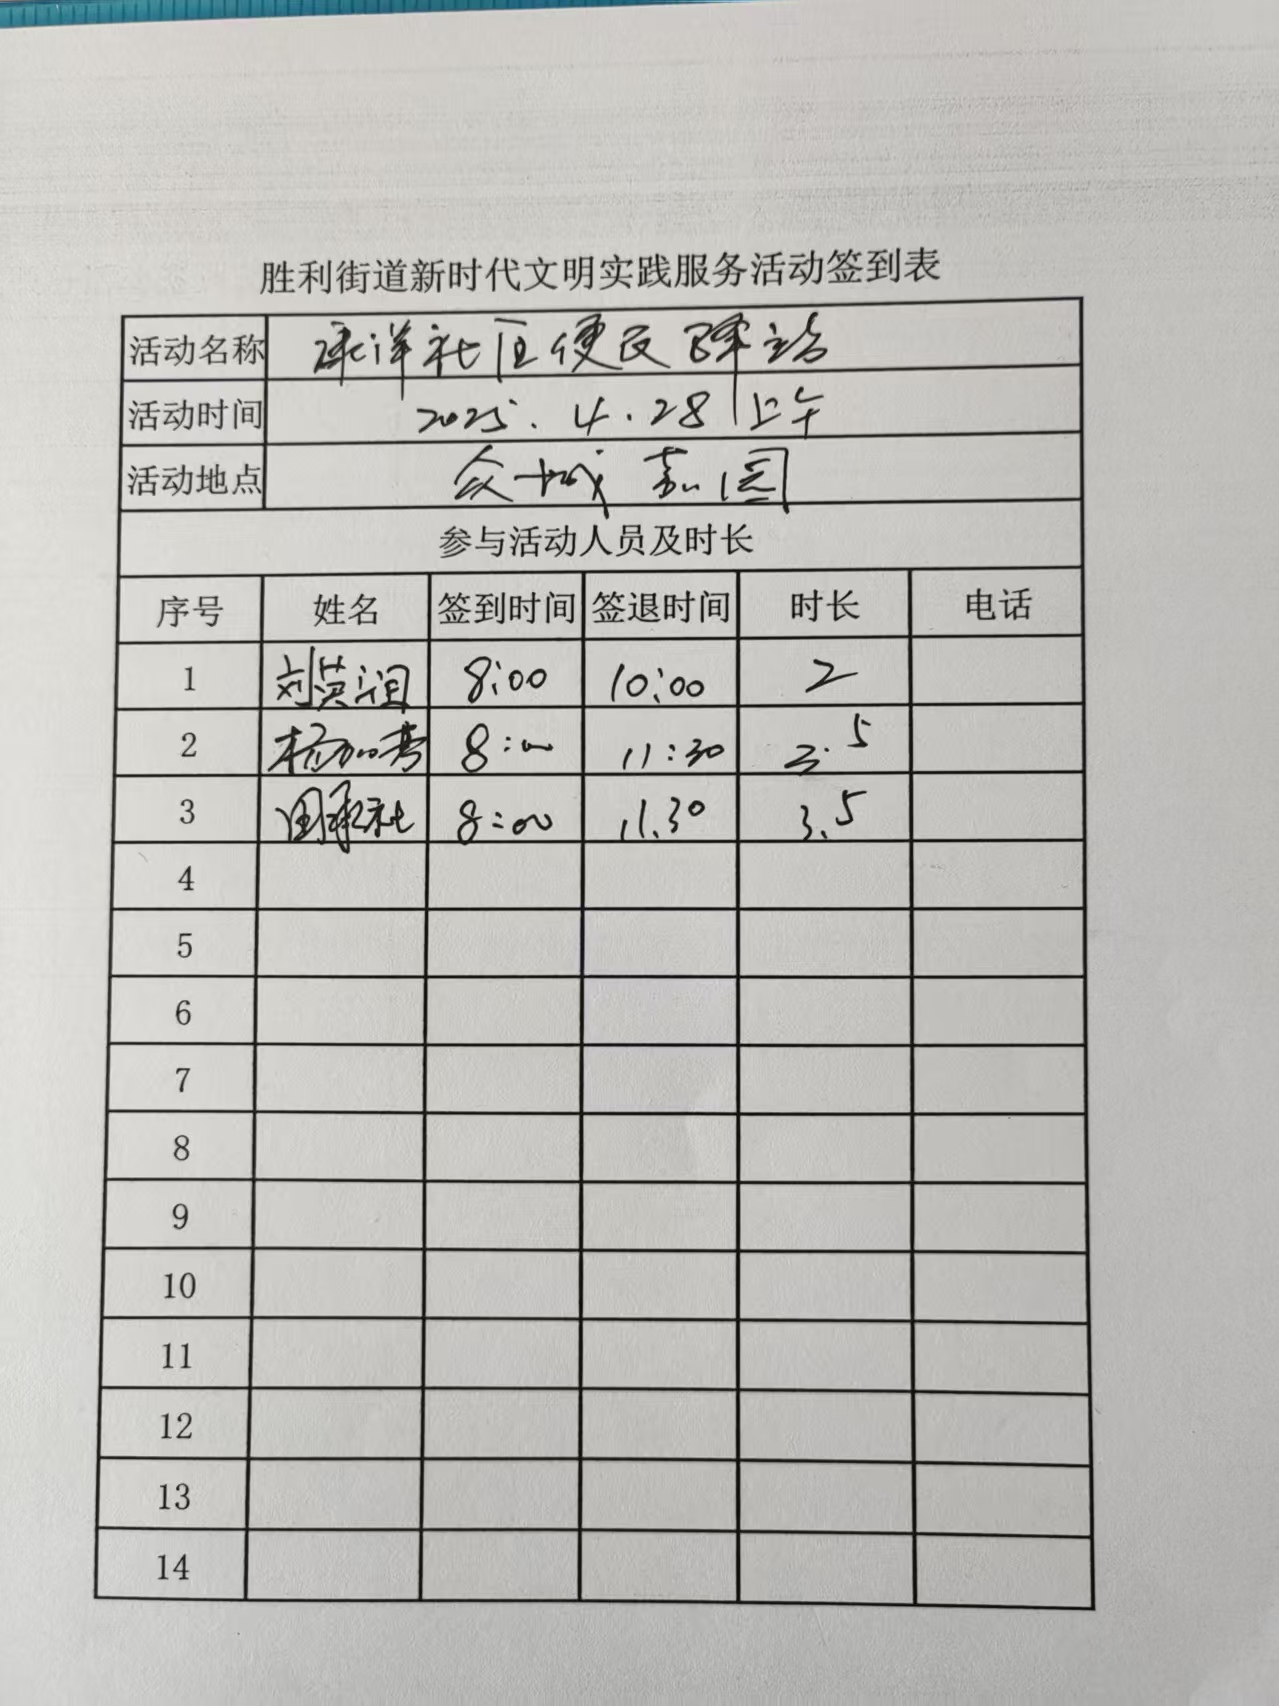 胜利街道新时代文明实践服务活动签到表
活动名称 康洋社区便民驿站
活动时间 2025.4.28上午
活动地点 众城嘉园
参与活动人员及时长
序号 姓名 签到时间 签退时间 时长 电话
1 刘英润 8:00 10:00 2
2 8:00 11:30 3.5
3 8:00 11.30 3.5
4
5
6
7
8
9
10
11
12
13
14